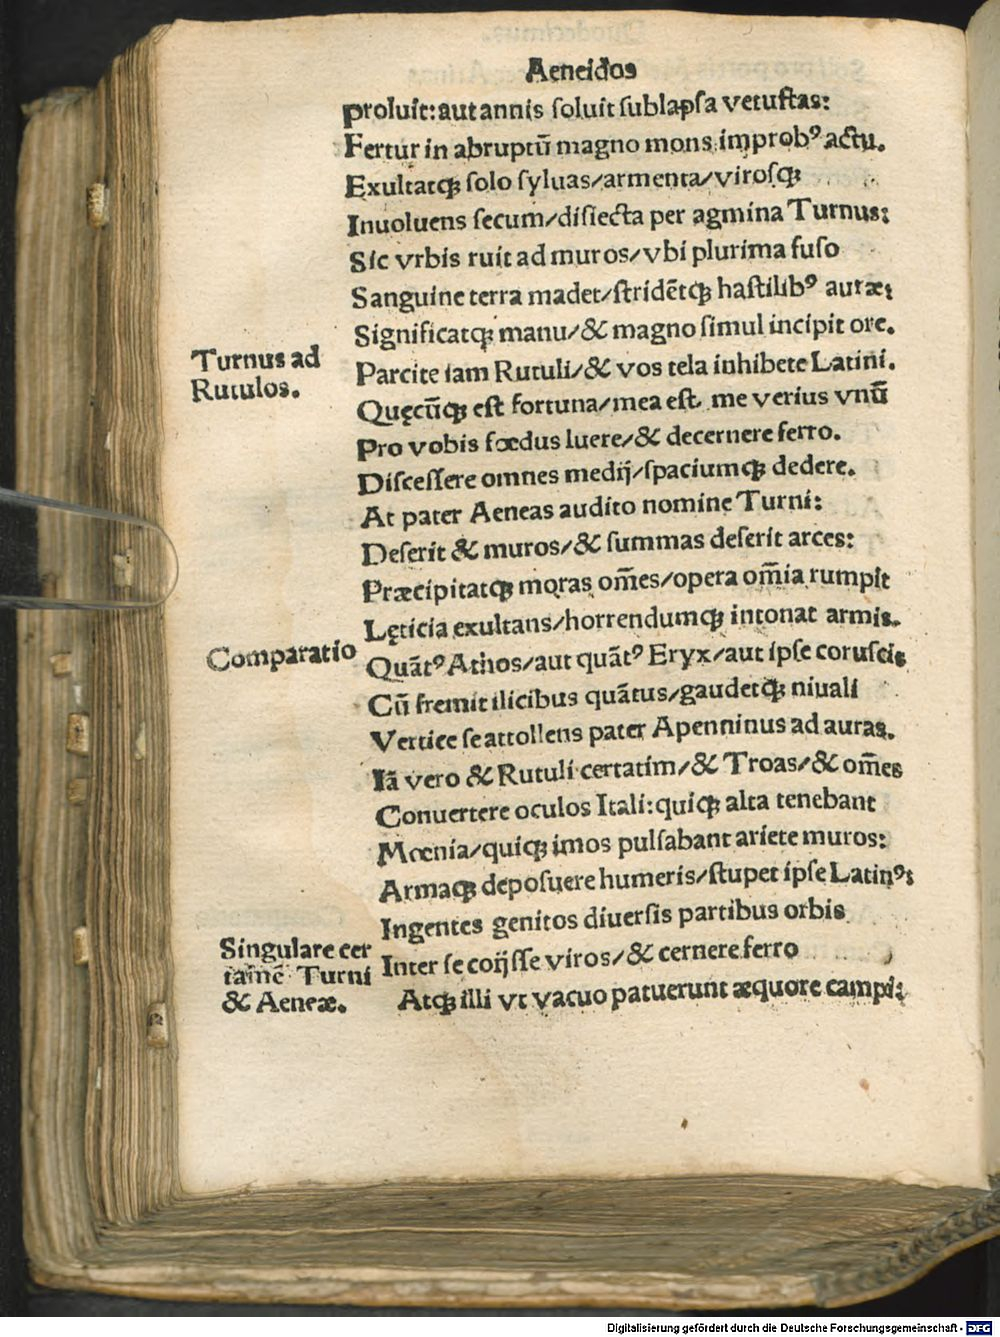 Aeneidos
proluit: aut annis ſoluit ſublapſa vetuſtas:
Fertur in abruptū magno mons improbꝰ actu.
Exultatqꝫ ſolo ſyluas/armenta/viroſqꝫ
Inuoluens ſecum/diſiecta per agmina Turnus:
Sic vrbis ruit ad muros/vbi plurima fuſo
Sanguine terra madet/ſtridētqꝫ haſtilibꝰ auræ:
Significatqꝫ manu/& magno ſimul incipit ore.
Turnus ad
Rutulos.
Parcite iam Rutuli/& vos tela inhibete Latini.
Quęcūqꝫ eſt fortuna/mea eſt. me verius vnū
Pro vobis fœdus luere/& decernere ferro.
Diſceſſere omnes medij/ſpaciumqꝫ dedere.
At pater Aeneas audito nomine Turni:
Deſerit & muros/& ſummas deſerit arces:
Præcipitatqꝫ moras om̄es/opera om̄ia rumpit
Lęticia exultans/horrendumqꝫ intonat armis.
Comparatio
Quātꝰ Athos/aut quātꝰ Eryx/aut ipſe coruſcis
Cū fremit ilicibus quātus/gaudetqꝫ niuali
Vertice ſe attollens pater Apenninus ad auras.
Iā vero & Rutuli certatim/& Troas/& om̄es
Conuertere oculos Itali: quiqꝫ alta tenebant
Mœnia/quiqꝫ imos pulſabant ariete muros:
Armaqꝫ depoſuere humeris/ſtupet ipſe Latinꝰ:
Ingentes genitos diuerſis partibus orbis
Singulare cer
tamē Turni
& Aeneæ.
Inter ſe coijſſe viros/& cernere ferro
Atqꝫ illi vt vacuo patuerunt æquore campi:
Digitalisierung gefördert durch die Deutsche Forschungsgemeinschaft - DFG